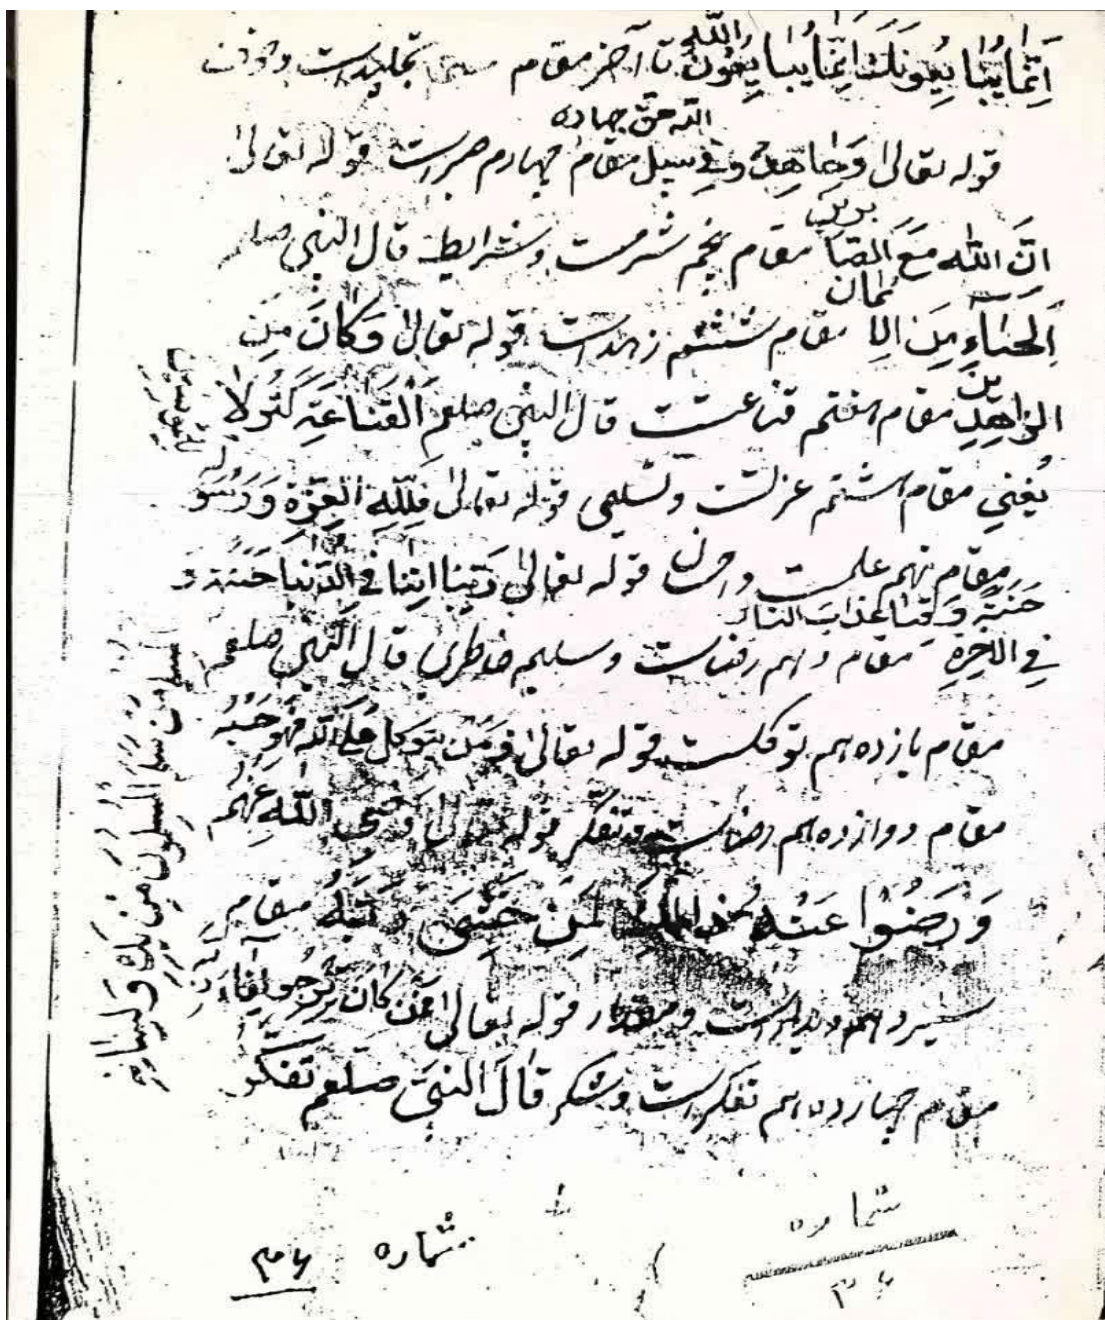 اِنَّمَا يُبَايِعُونَكَ اِنَّمَا يُبَايِعُونَ اللّٰه تا آخر مقام
الله حق جهاده
قوله تعالی وَجَاهِدُ وفی سبیل مقام چهارم صبرست قوله تعالی
اِنَّ اللّٰه مَعَ الصَّا برین مقام پنجم شرمست و شرایط قال النبی صلعم
اَلحَیَآءِ مِنَ الاِ یمان مقام ششم زهدست قوله تعالی وَکَانَ مِنَ
الزاهِدِ ین مقام هفتم قناعتست قال النبی صلعم اَلقَنَاعَةِ کَنزُلَا
یُغنیِ مقام هشتم عزلتست و تسلیمی قوله تعالی فَلِلّٰهِ العِزَّةِ وَرَسُو لِه
مقام نهم علمست و احسان قوله تعالی رَبَّنا اتِنا فِی الدُّنیا حَسَنَة وَ
حَسَنَةً وَقِنَا عَذابَ النار
فِی الاخِرَةِ مقام دهم رضاست و سلیم خاطری قال النبی صلعم
مقام یازده هم توکلست قوله تعالی وَ مَن یَتَوکل عَلَی الله فهو حَسبُهُ
مقام دوازده هم رضاست و تفکر قوله تعالی رَضِیَ اللّٰه عَنهُم
وَ رَضُوا عَنهُ ذالِكَ لِمَن خَشِیَ رَبَّهُ مقام
سیزدهم دیدارست و قوله تعالی فَمَن کَانَ یَرجُو لِقَاءَ رَبِّه
مقام چهارده هم تفکرست و شکر قَالَ النبیَّ صلعم تَفَکَّرُ
المسلمون مِن یَدِهِ وَ لِسَانِه
شماره
شماره ۳۶
۳۶